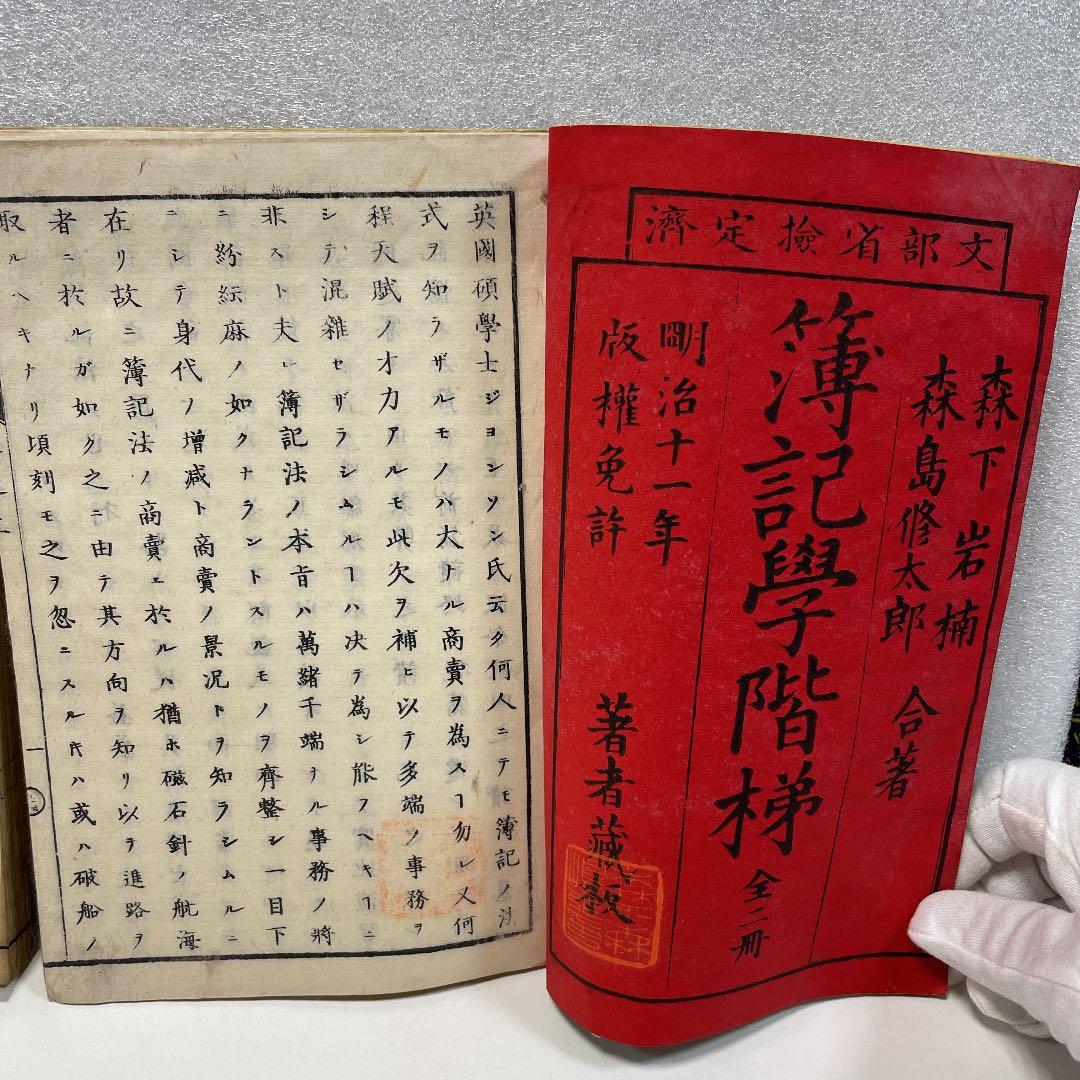 文部省撿定濟
森下岩楠
森島修太郎
合著
簿記學階梯 全二冊
明治十一年
版權免許
著者藏
英國碩學士ジヨンソン氏云ク何人ニテモ簿記ノ法
式ヲ知ラザルモノハ大ナル商賣ヲ為スヿ勿レ又何
程天賦ノ才力アルモ此欠ヲ補ヒ以テ多端ノ事務ヲ
シテ混雜セザラシムルヿハ决テ為シ能フヘキヿニ
非スト夫レ簿記法ノ本旨ハ萬緒千端ナル事務ノ將
ニ紛紜麻ノ如クナラントスルモノヲ齊整シ一目下
ニシテ身代ノ增减ト商賣ノ景况トヲ知ラシムルニ
在リ故ニ簿記法ノ商賣ニ於ルハ猶ホ磁石針ノ航海
者ニ於ルガ如ク之ニ由テ其方向ヲ知リ以テ進路ヲ
取ルヘキナリ頃刻モ之ヲ忽ニスル𪜈ハ或ハ破船ノ
一